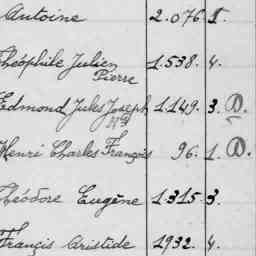 Antoine 2.076 1.
Théophile Julien 1.538. 4.
Pierre
Edmond Jules Joseph 1.149. 3. D.
Henri Charles François 96. 1. D.
Théodore Eugène 1.315. 3.
Francis Aristide 1932. 4.